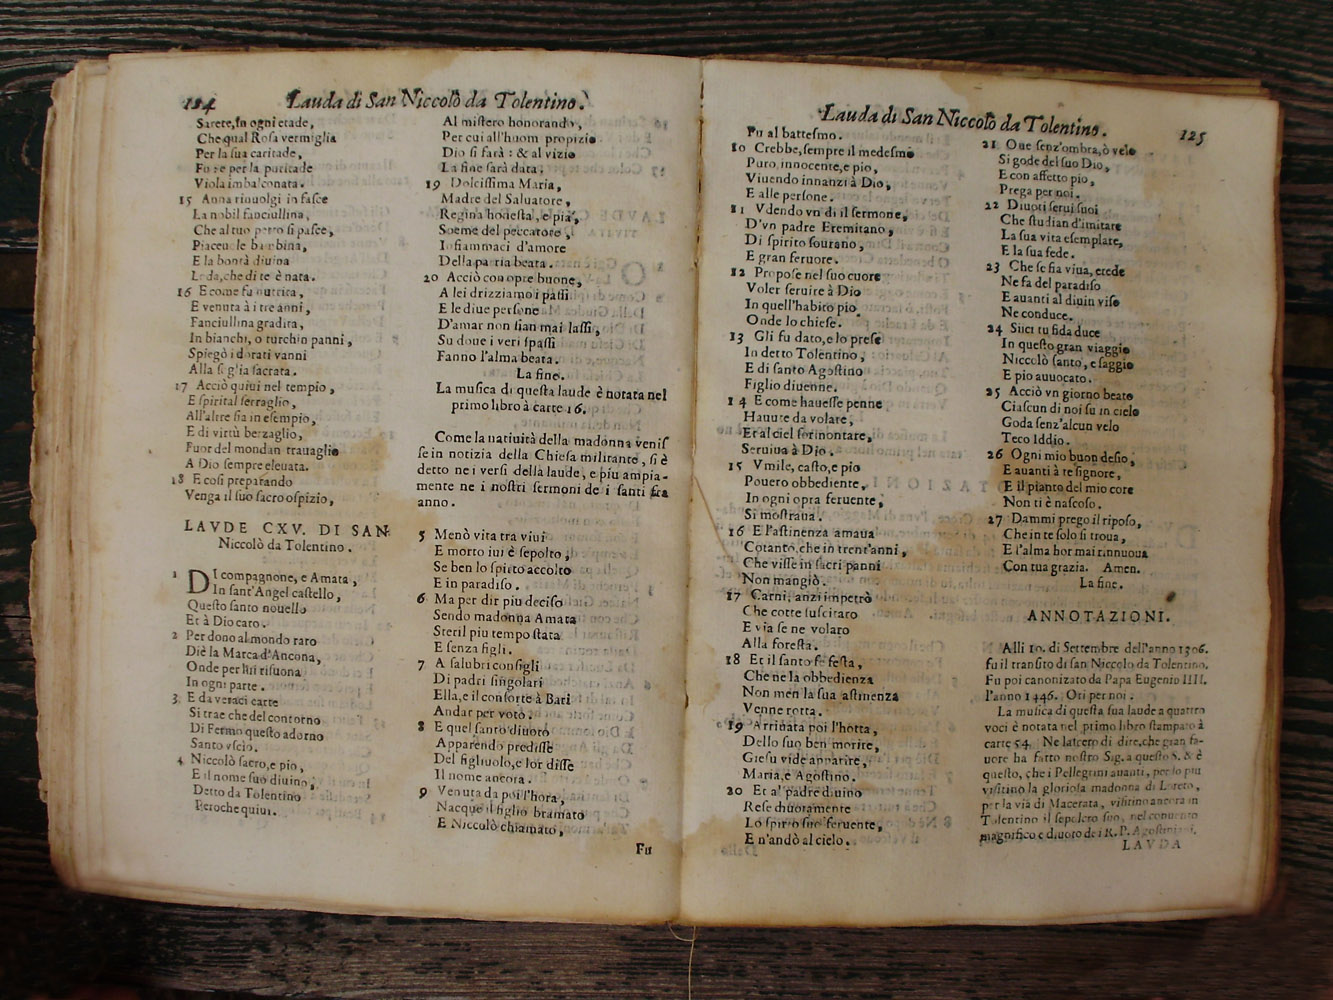 124 Lauda di San Niccolò da Tolentino.
Sarete, in ogni etade,
Che qual Rosa vermiglia
Per la sua caritade,
Fu e per la puritade
Viola imbalconata.
15 Anna riuolgi in fasce
La nobil fanciullina,
Che al tuo petto si pasce,
Piaceuole bambina,
E la bontà diuina
Loda, che di te è nata.
16 E come fu nutrita,
E venuta à i tre anni,
Fanciullina gradita,
In bianchi, o turchin panni,
Spiegò i dorati vanni
Alla sagia sacrata.
17 Acciò quiui nel tempio,
E spirital serraglio,
All'altre sia in esempio,
E di virtù berzaglio,
Fuor del mondan trauaglio
A Dio sempre eleuata.
18 E così preparando
Venga il suo sacro ospizio,
Al mistero honorando,
Per cui all'huom propizio
Dio si farà: & al vizio
La fine sarà data.
19 Dolcissima Maria,
Madre del Saluatore,
Regina honesta, e pia,
Speme del peccatore,
Infiammaci d'amore
Della patria beata.
20 Acciò con opre buone,
A lei drizziamo i passi
E le diue persone
D'amar non sian mai lassi,
Su doue i veri spassi
Fanno l'alma beata.
La fine.
La musica di questa laude è notata nel
primo libro à carte 16.
Come la natiuità della madonna venis
se in notizia della Chiesa militante, si è
detto ne i versi della laude, e più ampia-
mente ne i nostri sermoni de i santi fra
anno.
LAVDE CXV. DI SAN
Niccolò da Tolentino.
1 DI compagnone, e Amata,
In sant'Angel castello,
Questo santo nouello
Et à Dio caro.
2 Per dono al mondo raro
Diè la Marca d'Ancona,
Onde per lui risuona
In ogni parte.
3 E da veraci carte
Si trae che del contorno
Di Fermo questo adorno
Santo vscio.
4 Niccolò sacro, e pio,
E il nome suo diuino,
Detto da Tolentino
Peroche quiui.
5 Menò vita tra viui
E morto iui è sepolto,
Se ben lo spirto accolto
E in paradiso.
6 Ma per dir più deciso
Sendo madonna Amata
Steril più tempo stata
E senza figli.
7 A salubri consigli
Di padri singolari
Ella, e il consorte à Bari
Andar per voto.
8 E quel santo diuoto
Apparendo predisse
Del figliuolo, e lor disse
Il nome ancora.
9 Venuta da poi l'hora,
Nacque il figlio bramato
E Niccolò chiamato,
Fu
Lauda di San Niccolò da Tolentino. 125
Fu al battesmo.
10 Crebbe, sempre il medesmo
Puro, innocente, e pio,
Viuendo innanzi à Dio,
E alle persone.
11 Vdendo vn di il sermone,
D'vn padre Eremitano,
Di spirito sourano,
E gran feruore.
12 Propose nel suo cuore
Voler seruire à Dio
In quell'habito pio,
Onde lo chiese.
13 Gli fu dato, e lo prese
In detto Tolentino,
E di santo Agostino
Figlio diuenne.
14 E come hauesse penne
Hauute da volare,
Et al ciel sormontare,
Seruiua à Dio.
15 Vmile, casto, e pio
Pouero obbediente,
In ogni opra feruente,
Si mostraua.
16 E l'astinenza amaua
Cotanto, che in trent'anni,
Che visse in sacri panni
Non mangiò.
17 Carni, anzi impetrò
Che cotte suscitaro
E via se ne volaro
Alla foresta.
18 Et il santo fe festa,
Che ne la obbedienza
Non men la sua astinenza
Venne rotta.
19 Arriuata poi l'hotta,
Dello suo ben morire,
Giesu vide apparire,
Maria, e Agostino.
20 Et al padre diuino
Rese diuotamente
Lo spirto suo feruente,
E n'andò al cielo.
21 Oue senz'ombra, ò velo
Si gode del suo Dio,
E con affetto pio,
Prega per noi.
22 Diuoti serui suoi
Che studian d'imitare
La sua vita esemplare,
E la sua fede.
23 Che se fia viua, erede
Ne fa del paradiso
E auanti al diuin viso
Ne conduce.
24 Siici tu fida duce
In questo gran viaggio
Niccolò santo, e saggio
E pio auuocato.
25 Acciò vn giorno beato
Ciascun di noi su in cielo
Goda senz'alcun velo
Teco Iddio.
26 Ogni mio buon desio,
E auanti à te signore,
E il pianto del mio core
Non ti è nascoso.
27 Dammi prego il riposo,
Che in te solo si troua,
E l'alma hor mai rinnuoua
Con tua grazia. Amen.
La fine.
ANNOTAZIONI.
Alli 10. di Settembre dell'anno 1306.
fu il transito di san Niccolo da Tolentino.
Fu poi canonizato da Papa Eugenio IIII.
l'anno 1446. Ori per noi.
La musica di questa sua laude a quattro
voci è notata nel primo libro stampato à
carte 54. Ne lascerò di dire, che gran fa-
uore ha fatto nostro Sig. a questo S. & è
questo, che i Pellegrini auanti, per lo più
visitino la gloriosa madonna di Loreto,
per la via di Macerata, visitino ancora in
Tolentino il sepolcro suo, nel conuento
magnifico e diuoto de i R. P. Agostiniani.
LAVDA